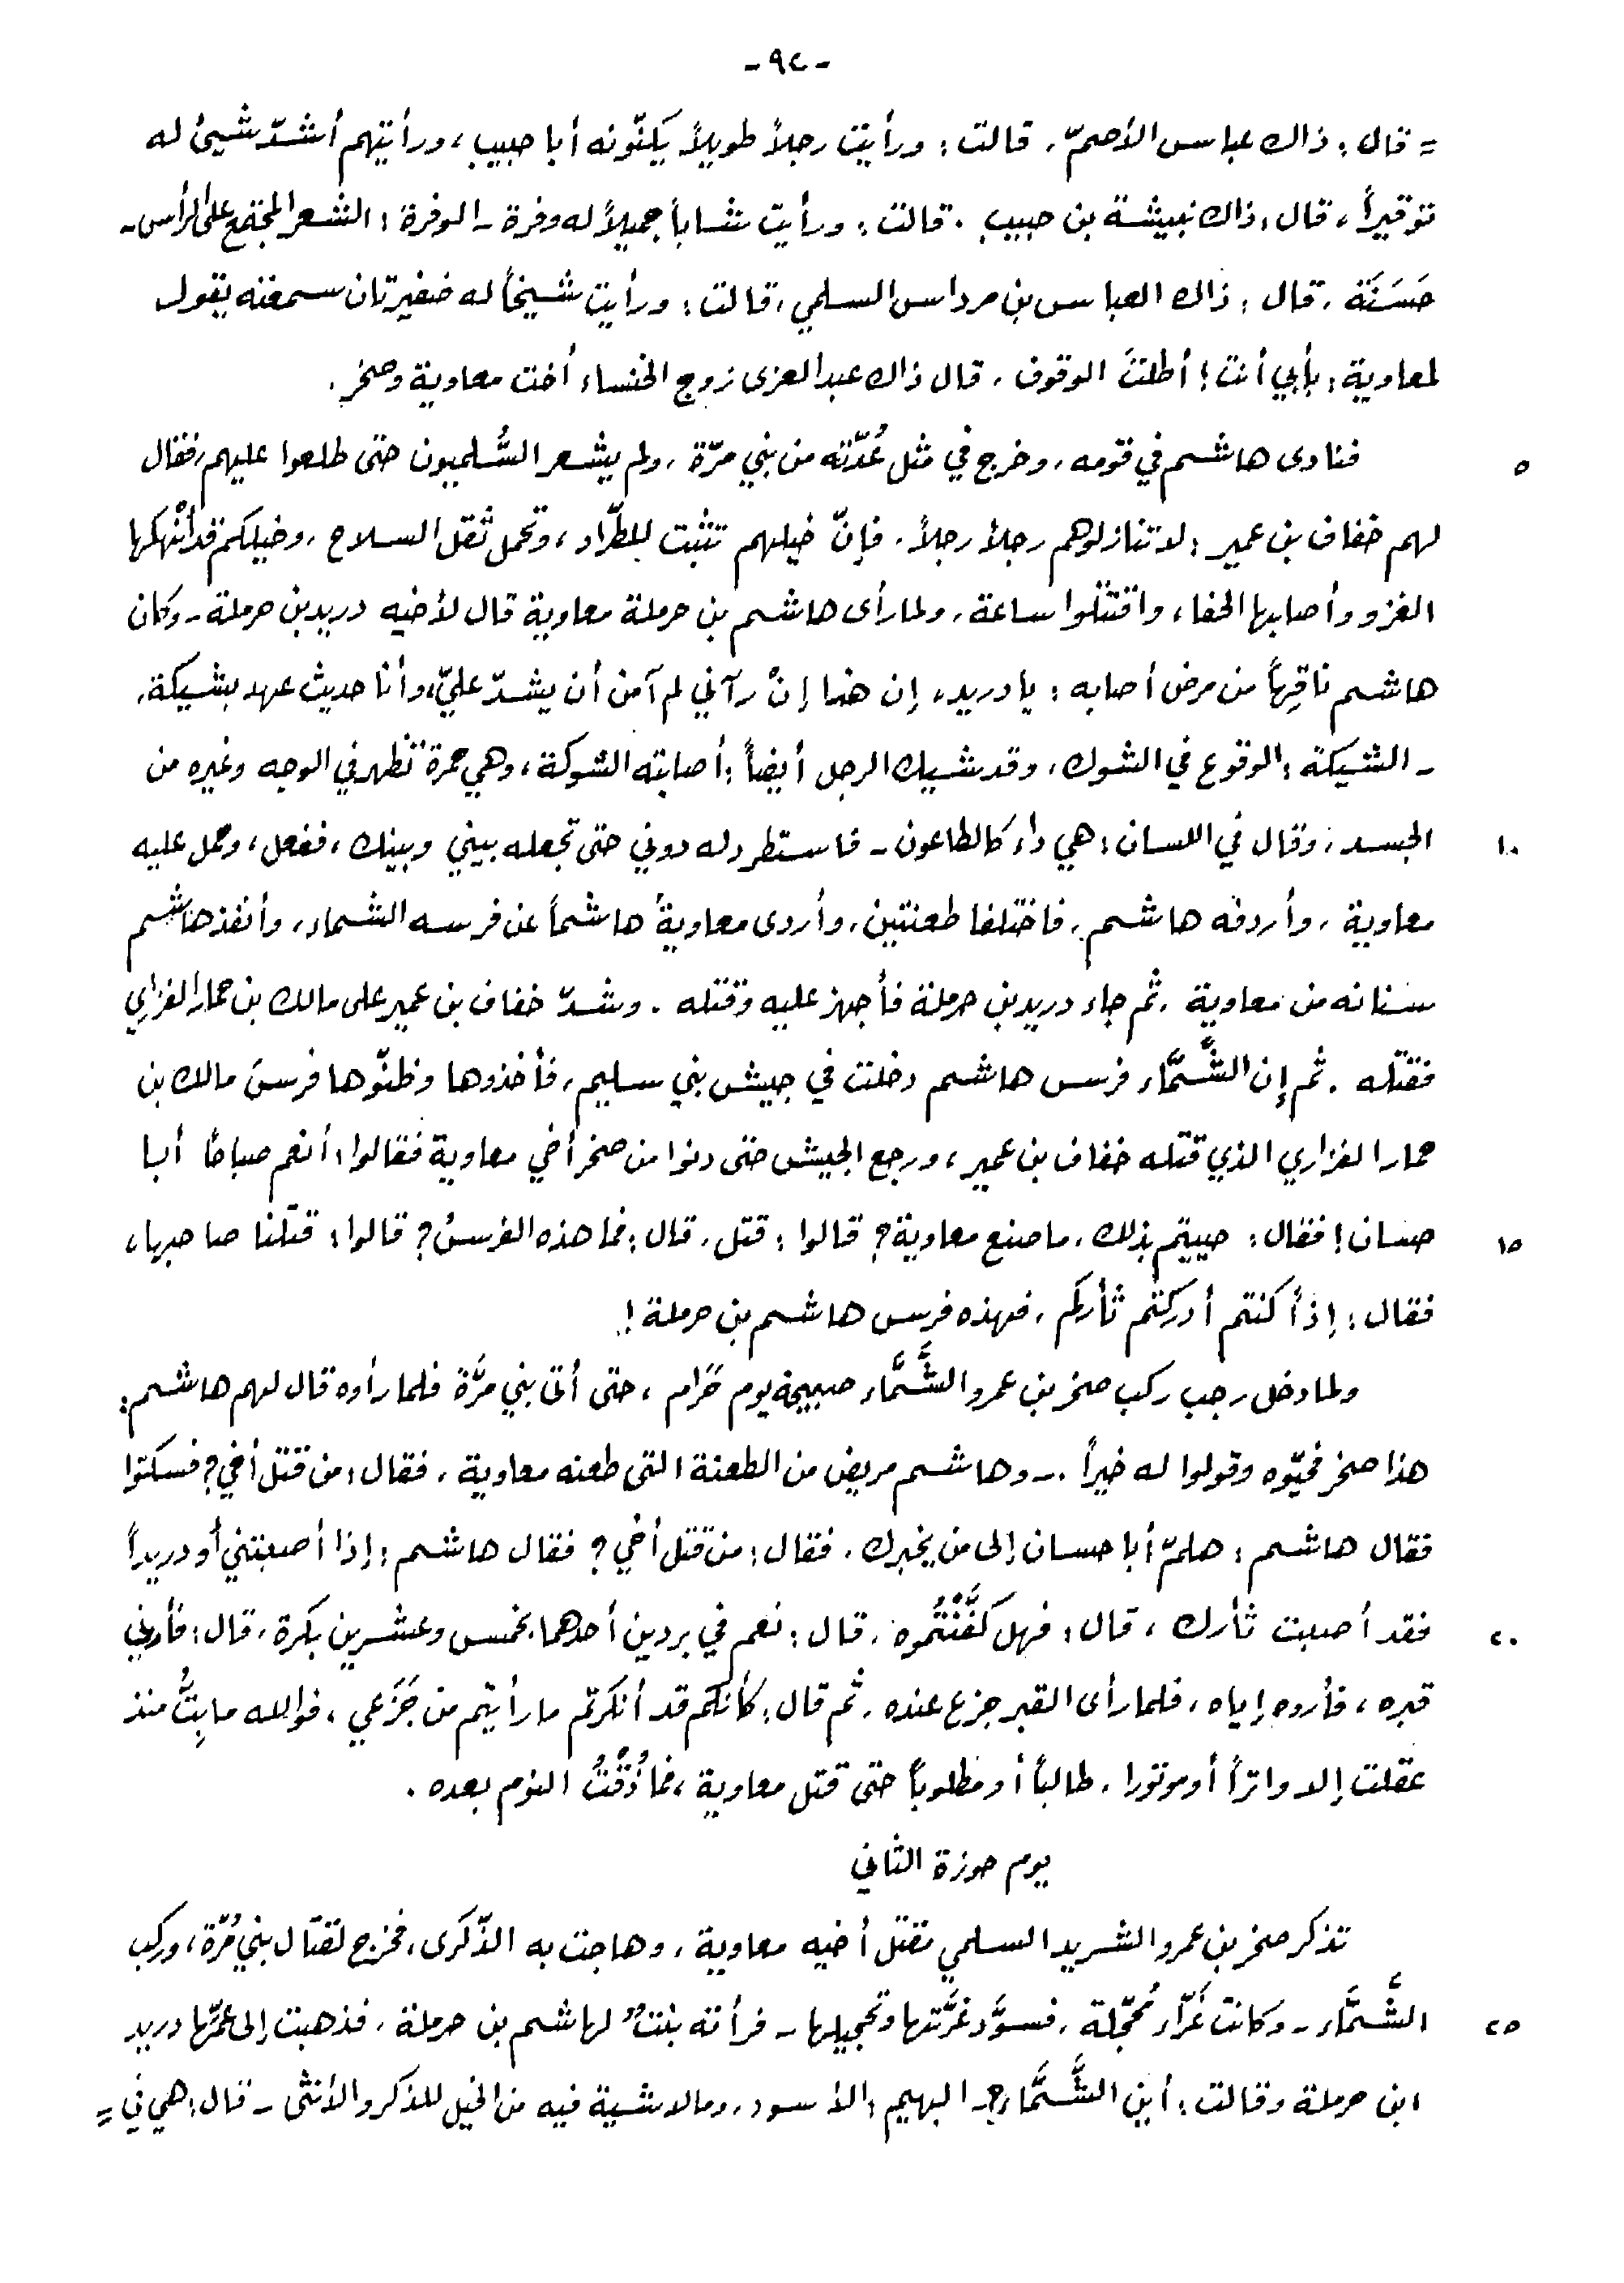 -٩٢-
= قال: ذاك عباس الأصمّ، قالت: ورأيت رجلاً طويلاً يَكنّونه أبا حبيب، ورأيتهم أشدّ شيئ له
توقيراً، قال: ذاك نبيشة بن حبيب. قالت: ورأيت شاباً جميلاً له وفرة - الوفرة: الشعر المجتمع على الرأس -
حَسَنَة، قال: ذاك العباس بن مرداس السلمي، قالت: ورأيت شيخاً له ضفيرتان سمعته يقول
لمعاوية: بأبي أنت! أطلتَ الوقوف، قال ذاك عبد العزى زوج الخنساء أخت معاوية وصخر.
٥ فنادى هاشم في قومه، وخرج في مثل عُدّته من بني مرّة، ولم يشعر السُّلميون حتى طلعوا عليهم، فقال
لهم خفاف بن عمير: لا تنازلوهم رجلاً رجلاً، فإنّ خيلهم تثبت للطّراد، وتحمل ثقل السلاح، وخيلكم قد أنْهكها
الغزو وأصابها الحفاء، واقتتلوا ساعة، ولما رأى هاشم بن حرملة معاوية قال لأخيه دريد بن حرملة - وكان
هاشم ناقِهاً من مرض أصابه: يا دريد، إن هذا إنْ رآني لم آمن أن يشدّ عليّ، وأنا حديث عهد بشيكة،
- الشيكة: الوقوع في الشوك، وقد شيك الرجل أيضاً: أصابته الشوكة، وهي حمرة تظهر في الوجه وغيره من
١٠ الجسد، وقال في اللسان: هي داء كالطاعون - فاستطرد له دوني حتى تجعله بيني وبينك، ففعل، وحمل عليه
معاوية، وأردفه هاشم، فاختلفا طعنتين، وأردى معاويةُ هاشماً عن فرسه الشماء، وأنفذ هاشم
سنانه من معاوية، ثم جاء دريد بن حرملة فأجهز عليه وقتله. وشدّ خفاف بن عمير على مالك بن حمار الفزاري
فقتله. ثم إن الشَّمَّاء فرس هاشم دخلت في جيش بني سليم، فأخذوها وظنّوها فرسَ مالك بن
حمار الفزاري الذي قتله خفاف بن عمير، ورجع الجيش حتى دنوا من صخر أخي معاوية فقالوا: أنعم صباحًا أبا
١٥ حسان! فقال: حييتم بذلك، ما صنع معاوية؟ قالوا: قتل، قال: فما هذه الفرسُ؟ قالوا: قتلنا صاحبها،
فقال: إذاً كنتم أدركتم ثأركم، فهذه فرس هاشم بن حرملة!.
ولما دخل رجب ركب صخر بن عمرو الشَّمَّاء صبيحة يوم حَرام، حتى أتى بني مُرَّة فلما رأوه قال لهم هاشم:
هذا صخر فحيّوه وقولوا له خيراً. - وهاشم مريض من الطعنة التى طعنه معاوية، فقال: من قتل أخي؟ فسكتوا
فقال هاشم: هلمّ أبا حسان إلى من يخبرك، فقال: من قتل أخي؟ فقال هاشم: إذا أصبتني أو دريداً
٢٠ فقد أصبت ثأرك، قال: فهل كفَّنْتُموه، قال: نعم في بردين أحدهما بخمس وعشرين بكرة، قال: فأروني
قبره، فأروه إياه، فلما رأى القبر جزع عنده، ثم قال: كأنكم قد أنكرتم ما رأيتم من جَزَعي، فوالله ما بِتُّ منذ
عقلت إلا واتراً أو موتورا، طالباً أو مطلوباً حتى قتل معاوية، فما ذُقْتُ النوم بعده.
يوم حوزة الثاني
تذكر صخر بن عمرو الشريد السلمي مقتل أخيه معاوية، وهاجت به الذّكرى، فخرج لقتال بني مُرّة، وركب
٢٥ الشَّمَّاء - وكانت غَرّاء مُحجّلة، فسوَّد غرَّتها وتحجيلها - فرأته بنتٌ لهاشم بن حرملة، فذهبت إلى عمّها دريد
ابن حرملة وقالت: أين الشَّمَّاء؟ - البهيم: الأسود، وما لا شية فيه من الخيل للذكر والأنثى - قال: هي في =